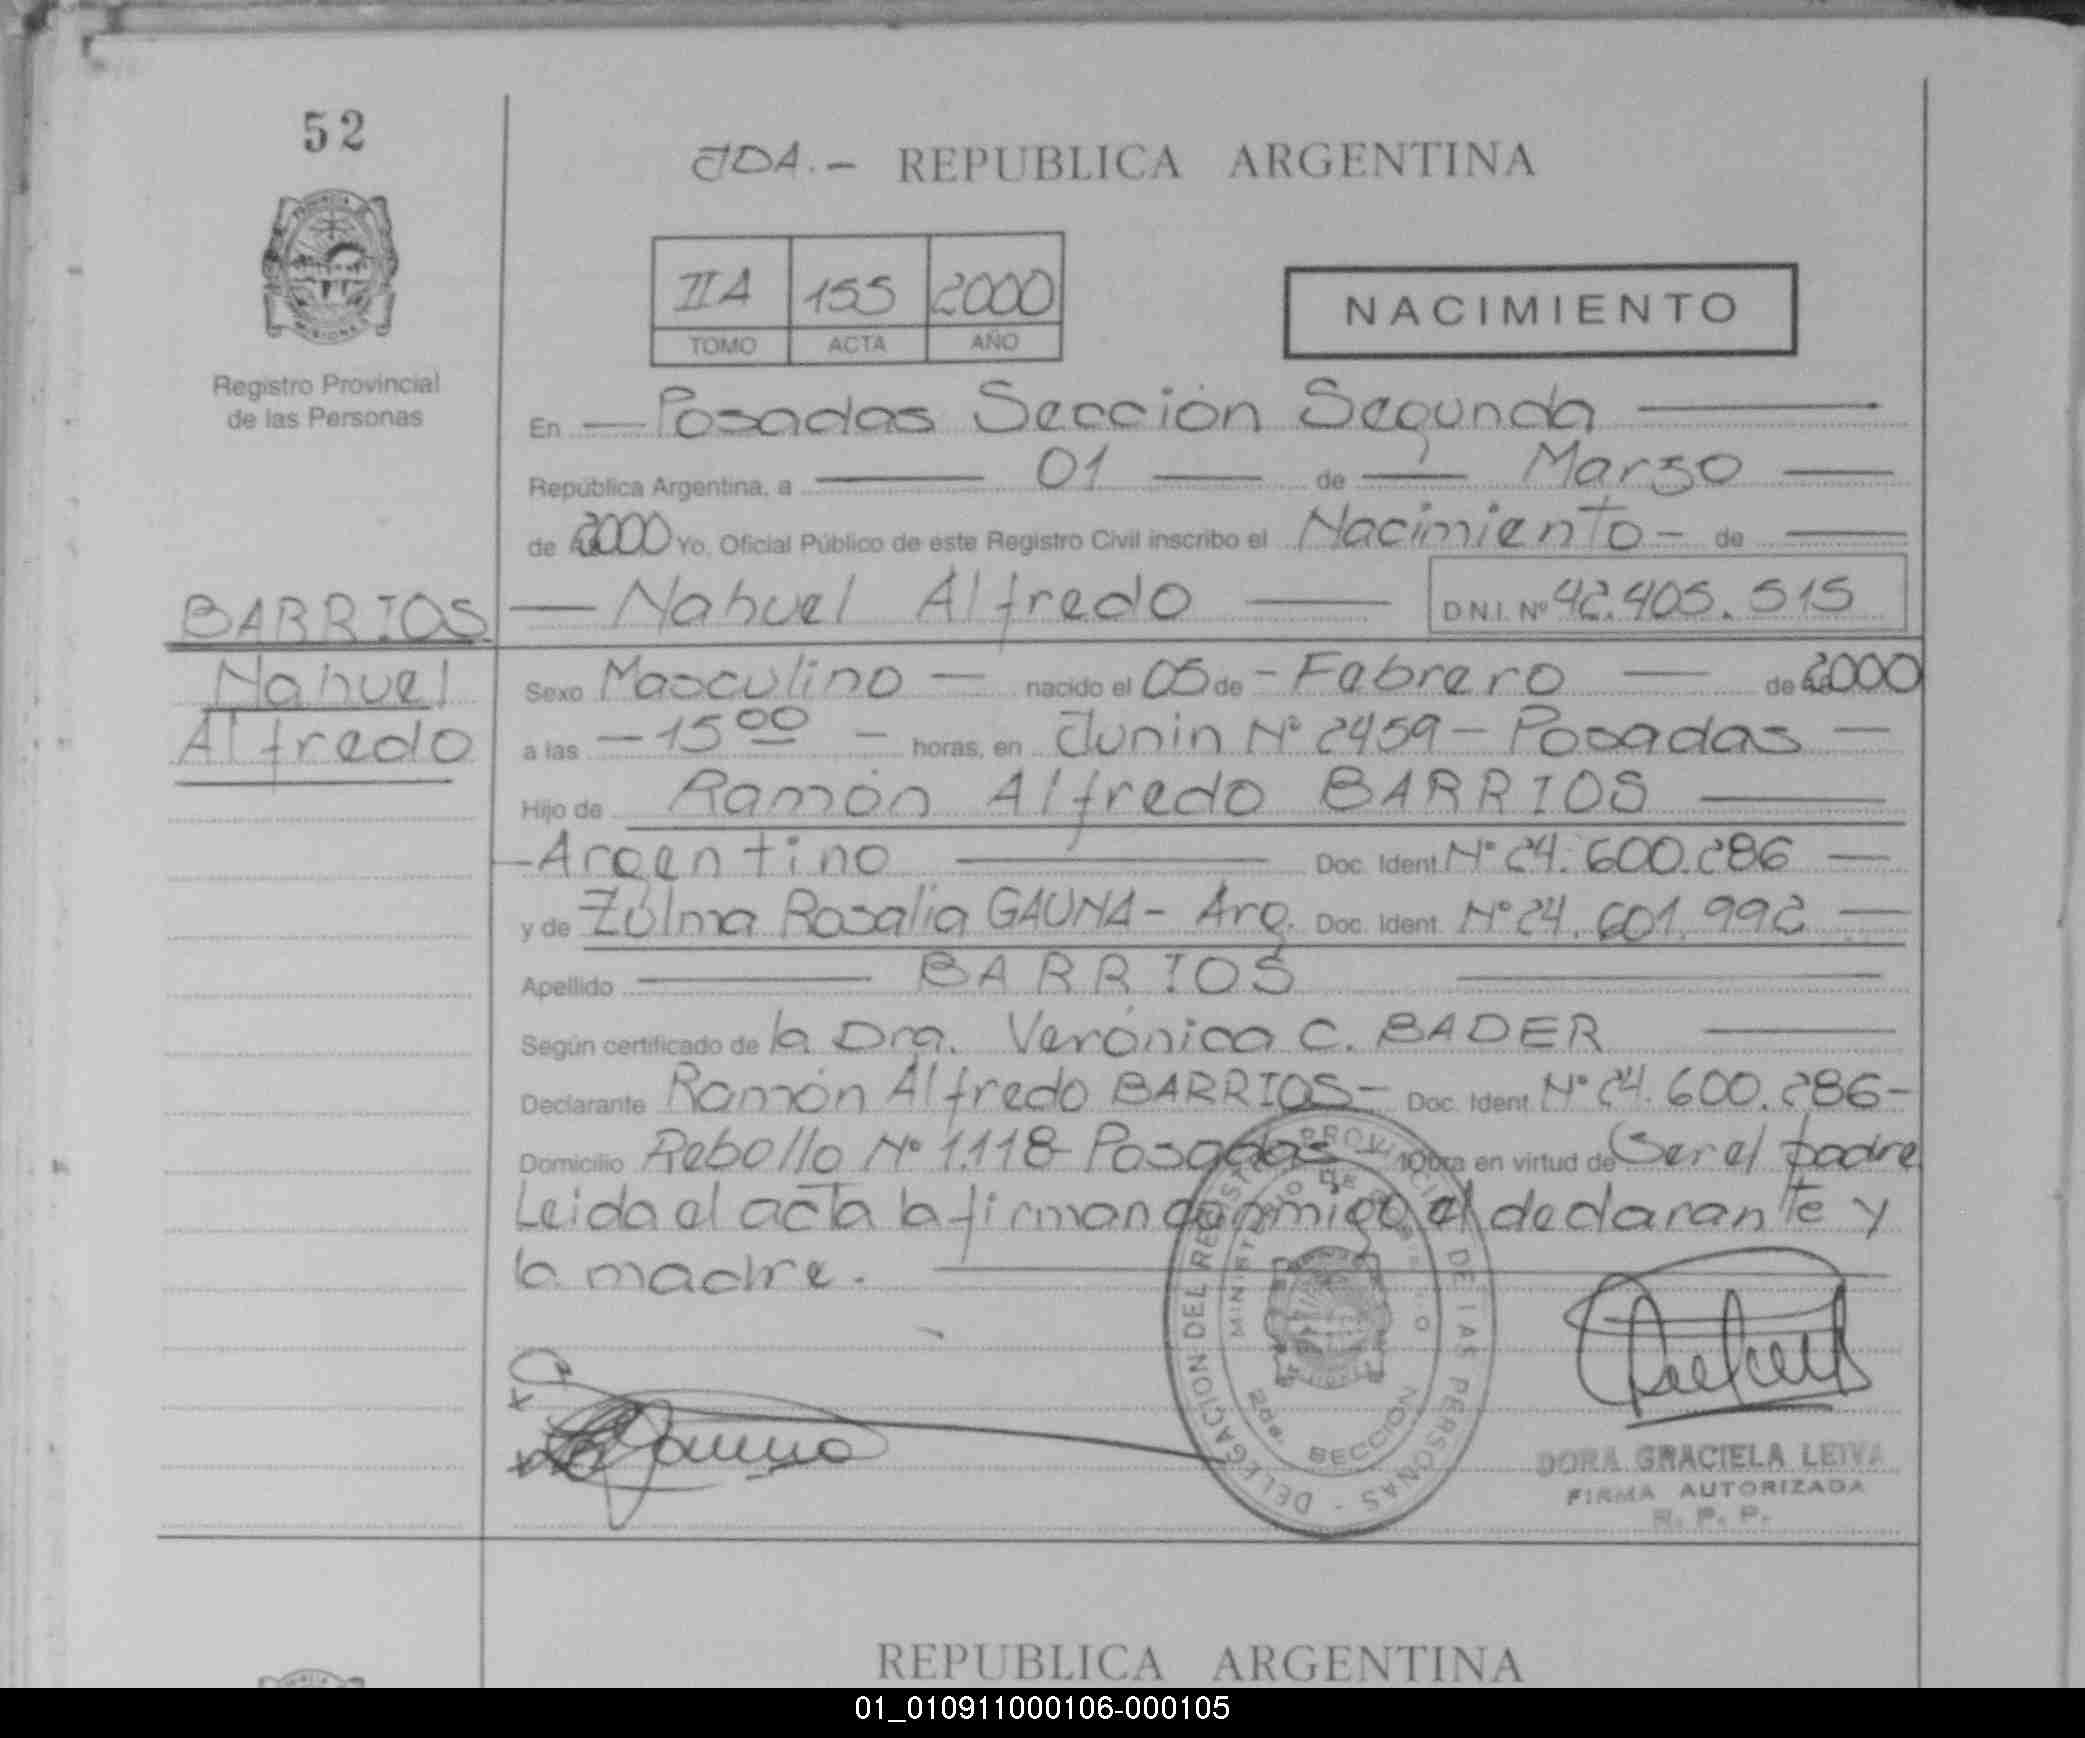 52
JDA.- REPUBLICA ARGENTINA
IIA 155 2000
TOMO ACTA AÑO
NACIMIENTO
Registro Provincial
de las Personas
En Posadas Sección Segunda
República Argentina, a 01 de Marzo
de 2000 Yo, Oficial Público de este Registro Civil inscribo el Nacimiento - de
BARRIOS
Nahuel
Alfredo
Nahuel Alfredo D.N.I. Nº 42.405.515
Sexo Masculino - nacido el 05 de - Febrero de 2000
a las - 15 00 - horas, en Junin Nº 2459 - Posadas -
Hijo de Ramón Alfredo BARRIOS
Argentino Doc. Ident. Nº 24.600.286
y de Zulma Rosalia GAUNA - Arg. Doc. Ident. Nº 24.601.992
Apellido BARRIOS
Según certificado de la Dra. Verónica C. BADER
Declarante Ramón Alfredo BARRIOS - Doc. Ident. Nº 24.600.286 -
Domicilio Rebollo Nº 1.118 Posadas Obra en virtud de Ser el padre
Leida el acta la firman conmigo el declarante y
la madre.
DELEGACION DEL REGISTRO PROVINCIAL DE LAS PERSONAS -
MINISTERIO DE
2da. SECCION
Gauna
DORA GRACIELA LEIVA
FIRMA AUTORIZADA
R. P. P.
REPUBLICA ARGENTINA
01_010911000106-000105